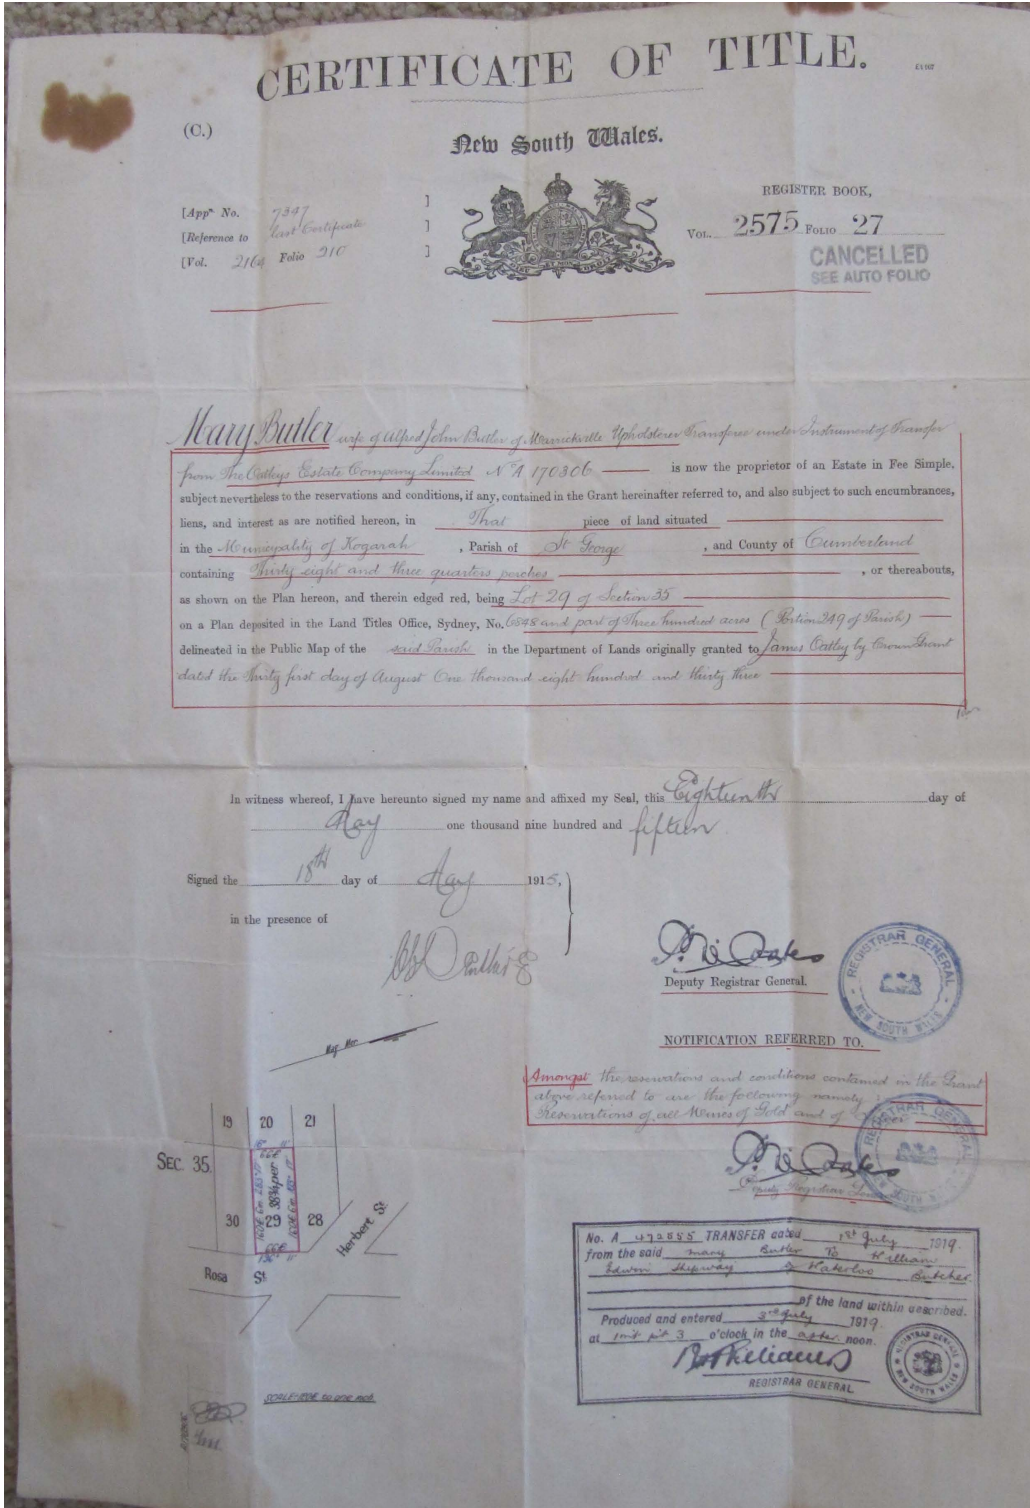 CERTIFICATE OF TITLE.
(C.)
New South Wales.
[Appn No. 7347 ]
[Reference to Last Certificate ]
[Vol. 2164 Folio 210 ]
REGISTER BOOK,
VOL. 2575 FOLIO 27
CANCELLED
SEE AUTO FOLIO
Mary Butler wife of Alfred John Butler of Marrickville Upholsterer Transferee under Instrument of Transfer
from The Oatleys Estate Company Limited No A 170306 is now the proprietor of an Estate in Fee Simple,
subject nevertheless to the reservations and conditions, if any, contained in the Grant hereinafter referred to, and also subject to such encumbrances,
liens, and interest as are notified hereon, in That piece of land situated
in the Municipality of Kogarah , Parish of St George , and County of Cumberland
containing Thirty eight and three quarters perches , or thereabouts,
as shown on the Plan hereon, and therein edged red, being Lot 29 of Section 35
on a Plan deposited in the Land Titles Office, Sydney, No. 6848 and part of Three hundred acres (Portion 249 of Parish)
delineated in the Public Map of the said Parish in the Department of Lands originally granted to James Oatley by Crown Grant
dated the Thirty first day of August One thousand eight hundred and thirty three
In witness whereof, I have hereunto signed my name and affixed my Seal, this Eighteenth day of
May one thousand nine hundred and fifteen.
Signed the 18th day of May 1915,
in the presence of
Deputy Registrar General.
REGISTRAR GENERAL
NEW SOUTH WALES
NOTIFICATION REFERRED TO.
Amongst the reservations and conditions contained in the Grant
above referred to are the following namely:
Reservations of all Mines of Gold and of
Deputy Registrar General
REGISTRAR GENERAL
SOUTH WALES
Mag. Mer.
19 20 21
SEC. 35
38¾ per
30 29 28
Herbert St
Rosa St
No. A 472555 TRANSFER dated 1st July 1919.
from the said Mary Butler To William
Edwin Shipway of Waterloo Butcher
of the land within described.
Produced and entered 3rd July 1919
at 1 mt pt 3 o'clock in the after noon.
REGISTRAR GENERAL
REGISTRAR GENERAL
NEW SOUTH WALES